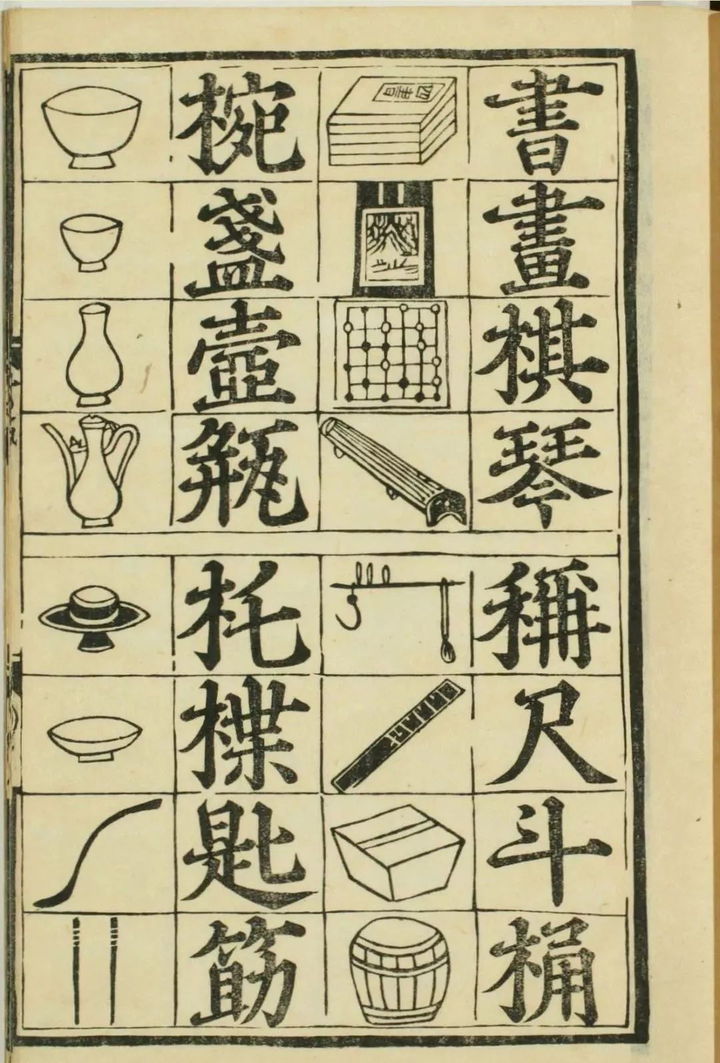 書畫棋琴
稱尺斗桶
四書
椀盞壺瓶
杔楪匙筯